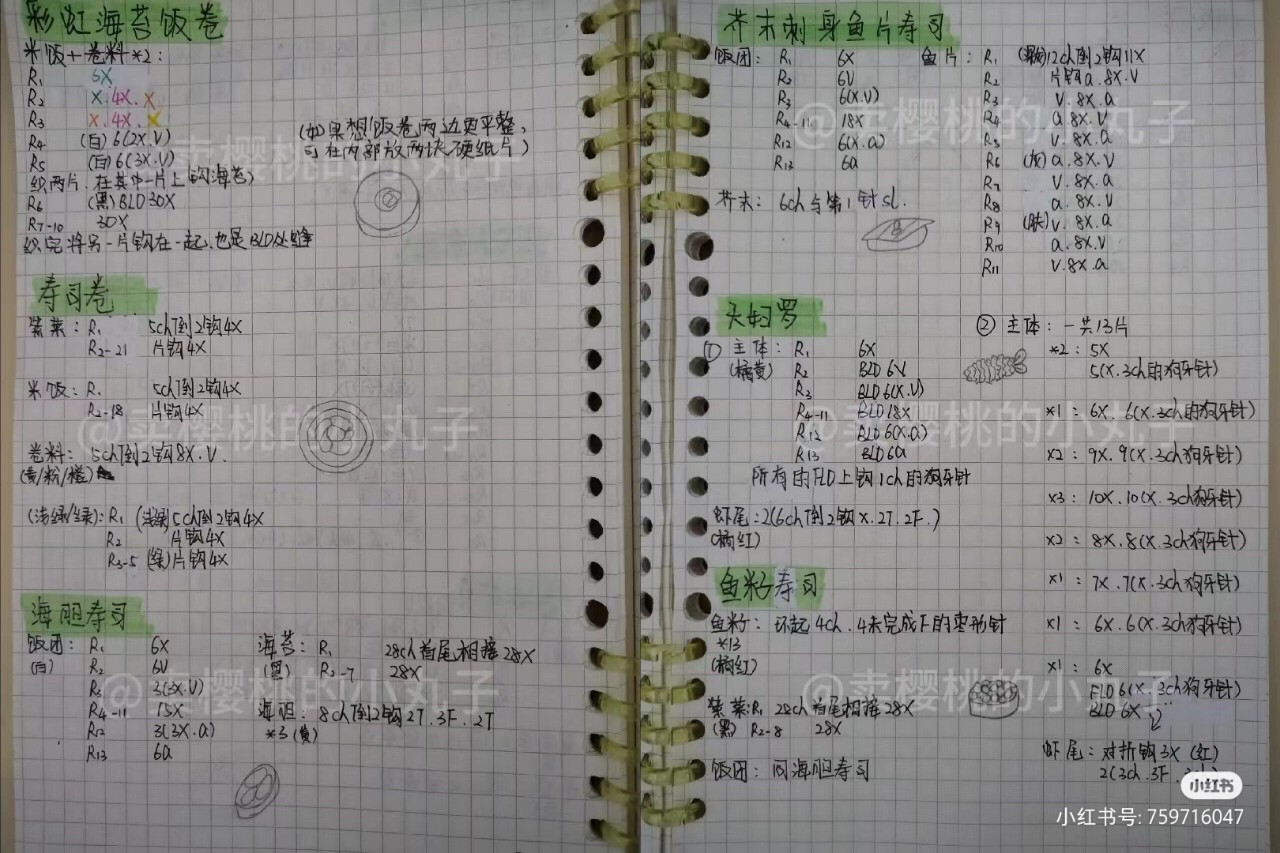 彩虹海苔饭卷
米饭+卷料*2:
R1 6X
R2 X.4X.X
R3 X.4X.X
R4 (白)6(2X.V)
R5 (白)6(3X.V)
织两片,在其中一片上钩海苔
R6 (黑)BLO 30X
R7-10 30X
织完将另一片钩在一起,也是BLO处缝
(如果想饭卷两边更平整,
可在内部放两块硬纸片)
寿司卷
紫菜: R1 5ch倒2钩4X
R2-21 片钩4X
米饭: R1 5ch倒2钩4X
R2-18 片钩4X
卷料: 5ch倒2钩8X.V.
(黄/粉/橙)
(浅绿/绿): R1 (浅绿)5ch倒2钩4X
R2 片钩4X
R3-5 (绿)片钩4X
海胆寿司
饭团: R1 6X
(白) R2 6V
R3 3(3X.V)
R4-11 15X
R12 3(3X.A)
R13 6A
海苔: R1 28ch首尾相接28X
(黑) R2-7 28X
海胆: 8ch倒2钩2T.3F.2T
*3(黄)
芥末刺身鱼片寿司
饭团: R1 6X
R2 6V
R3 6(X.V)
R4-11 18X
R12 6(X.A)
R13 6A
芥末: 6ch与第1针sl.
鱼片: R1 12ch倒2钩11X
R2 片钩A.8X.V
R3 V.8X.A
R4 A.8X.V
R5 V.8X.A
R6 A.8X.V
R7 V.8X.A
R8 A.8X.V
R9 (肤)V.8X.A
R10 A.8X.V
R11 V.8X.A
天妇罗
① 主体: R1 6X
(橘黄) R2 BLO 6V
R3 BLO 6(X.V)
R4-11 BLO 18X
R12 BLO 6(X.A)
R13 BLO 6A
所有的FLO上钩1ch的狗牙针
虾尾: 2(6ch倒2钩X.2T.2F.)
(橘红)
② 主体: 一共13片
*2: 5X
5(X.3ch的狗牙针)
*1: 6X.6(X.3ch的狗牙针)
×2: 9X.9(X.3ch狗牙针)
×3: 10X.10(X.3ch狗牙针)
×2: 8X.8(X.3ch狗牙针)
×1: 7X.7(X.3ch狗牙针)
×1: 6X.6(X.3ch狗牙针)
×1: 6X
FLO 6(X.3ch狗牙针)
BLO 6X
虾尾: 对折钩3X(红)
2(3ch.3F.
鱼籽寿司
鱼籽: 环起4ch.4未完成F的枣形针
*13
(橘红)
紫菜: R1 28ch首尾相接28X
(黑) R2-8 28X
饭团: 同海胆寿司
@卖樱桃的小丸子
@卖樱桃的小丸子
@卖樱桃的小丸子
@卖樱桃的小丸子
@卖樱桃的小丸子
@卖樱桃的小丸子
小红书
小红书号: 759716047